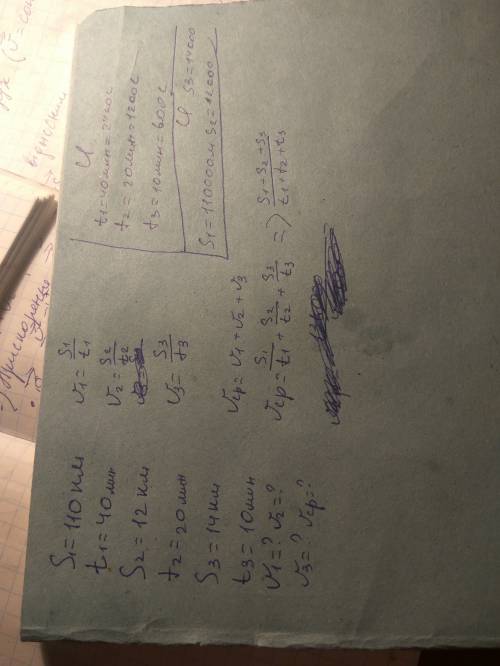 S1 = 110 км
t1 = 40 мин
S2 = 12 км
t2 = 20 мин
S3 = 14 км
t3 = 10 мин
v1 = ? v2 = ?
v3 = ? vср = ?
v1 = S1/t1
v2 = S2/t2
v3 = S3/t3
vср = v1 + v2 + v3
vср = S1/t1 + S2/t2 + S3/t3 => S1 - S2 + S3/t1 + t2 + t3
СИ
t1 = 40 мин = 2400 с
t2 = 20 мин = 1200 с
t3 = 10 мин = 600 с
СИ S3 = 14000
S1 = 110000 м S2 = 12000